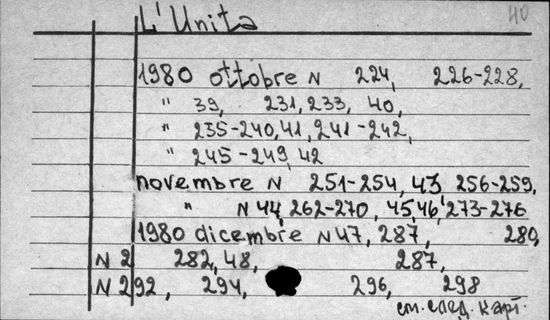 L'Unita 40
1980 ottobre N 224, 226-228,
" 39, 231, 233, 40,
" 235-240, 41, 241-242,
" 245-249, 42
novembre N 251-254, 43 256-259,
" N 44, 262-270, 45, 46, 273-276
1980 dicembre N 47, 287, 280,
N 2 282, 48, 287,
N 292, 294, 296, 298
см. след. карт.